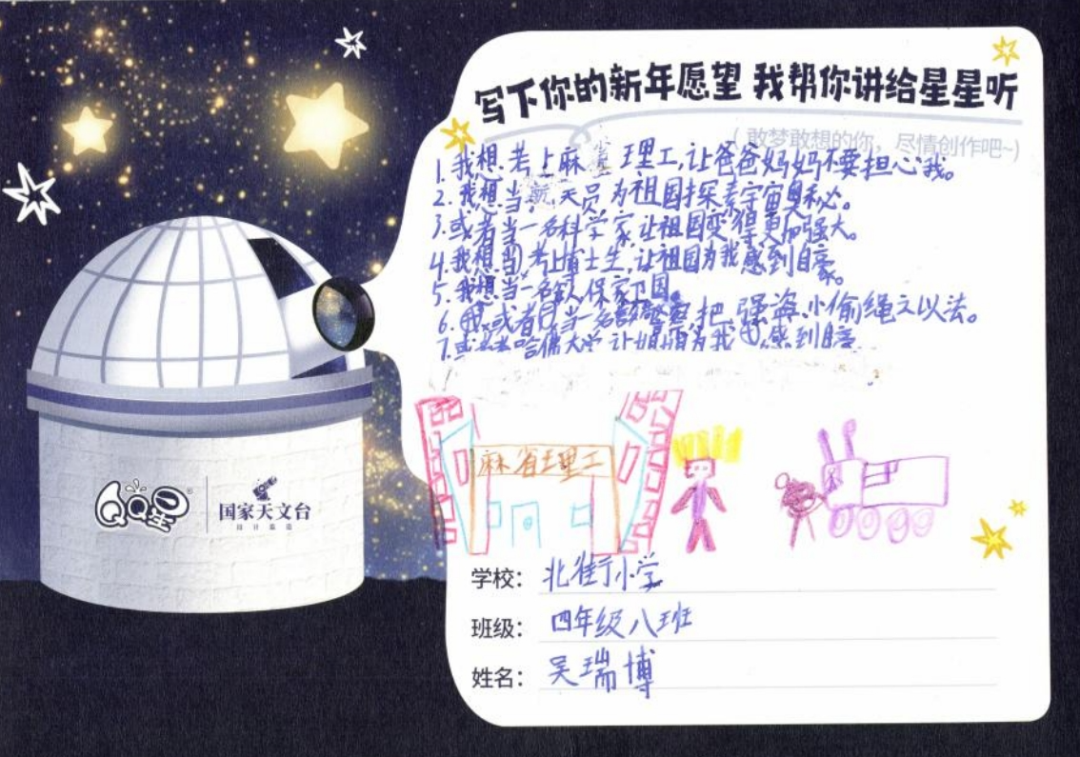 写下你的新年愿望 我帮你讲给星星听
(敢梦敢想的你，尽情创作吧~)
1.我想考上麻省理工,让爸爸妈妈不要担心我。
2.我想当航天员为祖国探索宇宙奥秘。
3.或者当一名科学家让祖国变得更加强大。
4.我想当考上博士生,让祖国为我感到自豪。
5.我想当一名军人保家卫国。
6.或者当一名警察把强盗小偷绳之以法。
7.或去哈佛大学让妈妈为我感到自
麻省理工
QQ星
国家天文台
学校：北街小学
班级：四年级八班
姓名：吴瑞博